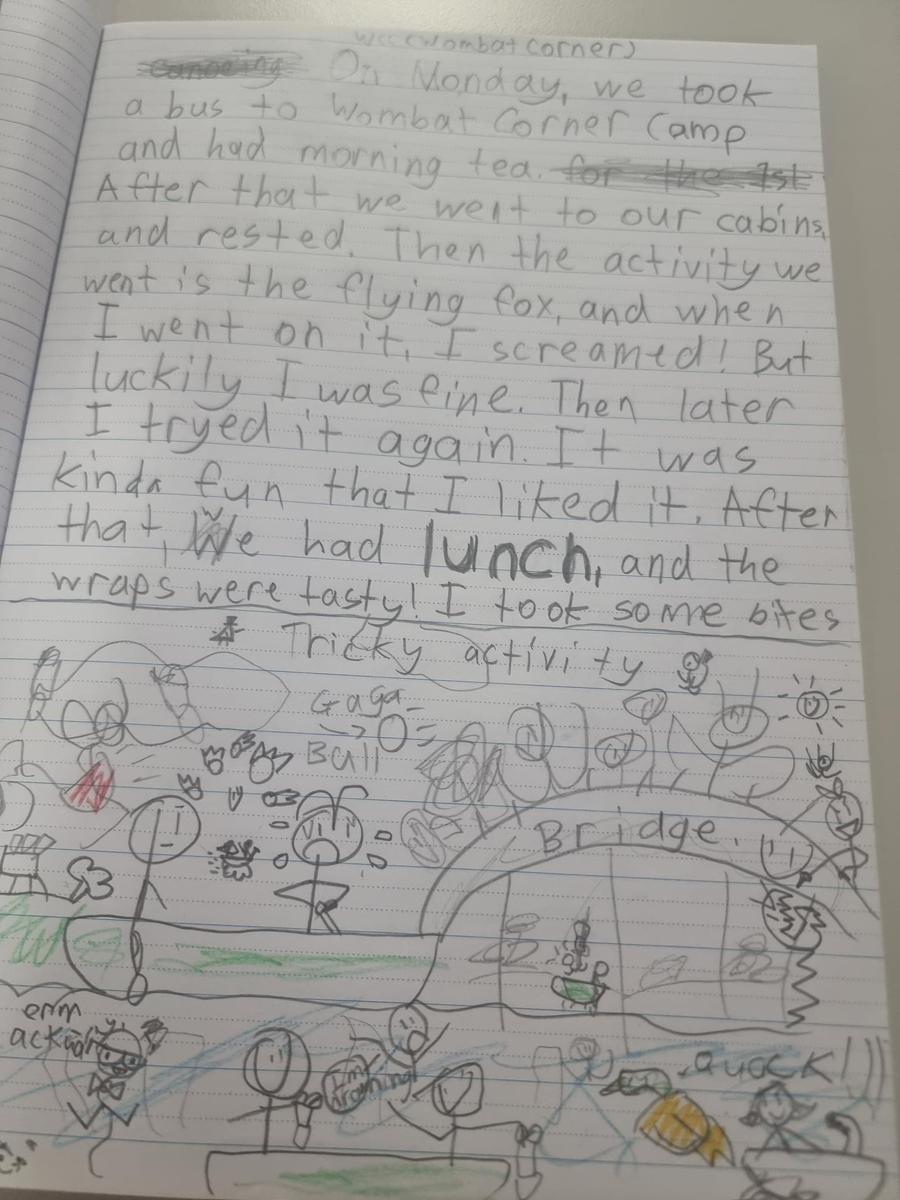 WCC (Wombat Corner)
Canoeing On Monday, we took
a bus to Wombat Corner Camp
and had morning tea. for the 1st
After that we went to our cabins,
and rested. Then the activity we
went is the flying fox, and when
I went on it, I screamed! But
luckily I was fine. Then later
I tryed it again. It was
kinda fun that I liked it. After
that, We had lunch, and the
wraps were tasty! I took some bites
Tricky activity
Gaga
Ball
Bridge.
erm
I'm
drowning!
QUACK!